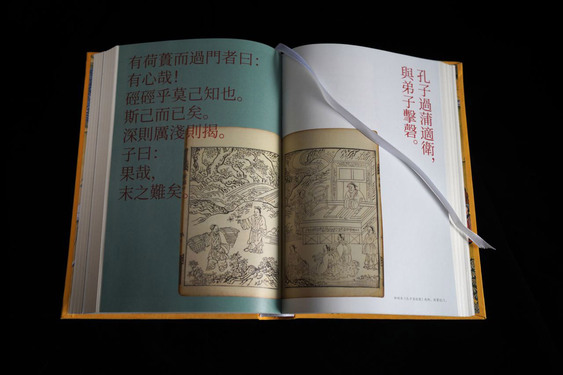 有荷蕢而過門者曰：
有心哉！
硜硜乎莫己知也。
斯己而已矣。
深則厲淺則揭。
子曰：
果哉，
末之難矣。
孔子過蒲適衛，
與弟子擊磬。